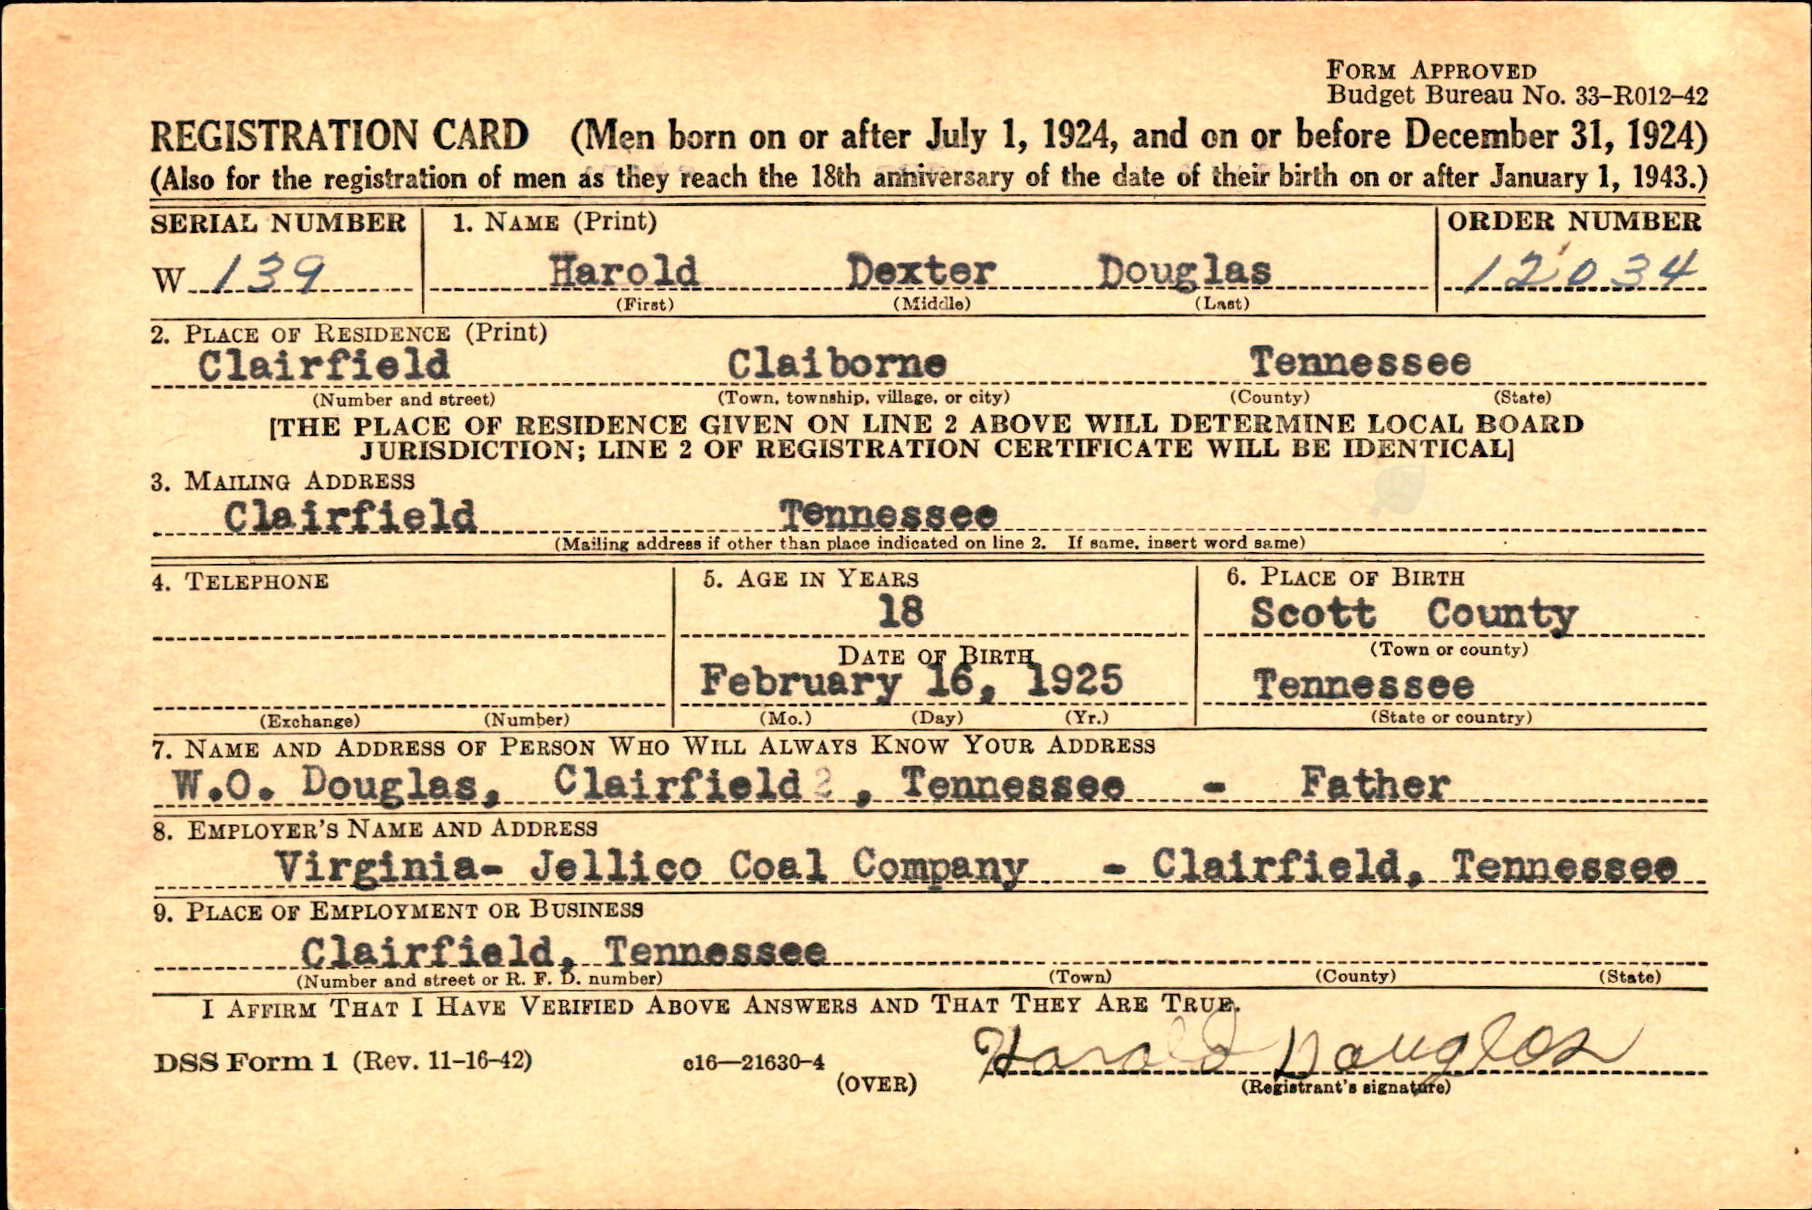 FORM APPROVED
Budget Bureau No. 33–R012–42
REGISTRATION CARD (Men born on or after July 1, 1924, and on or before December 31, 1924)
(Also for the registration of men as they reach the 18th anniversary of the date of their birth on or after January 1, 1943.)
SERIAL NUMBER 1. NAME (Print) ORDER NUMBER
W 139 Harold Dexter Douglas 12034
(First) (Middle) (Last)
2. PLACE OF RESIDENCE (Print)
Clairfield Claiborne Tennessee
(Number and street) (Town, township, village, or city) (County) (State)
[THE PLACE OF RESIDENCE GIVEN ON LINE 2 ABOVE WILL DETERMINE LOCAL BOARD
JURISDICTION; LINE 2 OF REGISTRATION CERTIFICATE WILL BE IDENTICAL]
3. MAILING ADDRESS
Clairfield Tennessee
(Mailing address if other than place indicated on line 2. If same, insert word same)
4. TELEPHONE 5. AGE IN YEARS 6. PLACE OF BIRTH
18 Scott County
DATE OF BIRTH (Town or county)
February 16, 1925 Tennessee
(Exchange) (Number) (Mo.) (Day) (Yr.) (State or country)
7. NAME AND ADDRESS OF PERSON WHO WILL ALWAYS KNOW YOUR ADDRESS
W.O. Douglas, Clairfield , Tennessee - Father
8. EMPLOYER'S NAME AND ADDRESS
Virginia- Jellico Coal Company - Clairfield, Tennessee
9. PLACE OF EMPLOYMENT OR BUSINESS
Clairfield, Tennessee
(Number and street or R. F. D. number) (Town) (County) (State)
I AFFIRM THAT I HAVE VERIFIED ABOVE ANSWERS AND THAT THEY ARE TRUE.
DSS Form 1 (Rev. 11–16–42) c16—21630-4 (OVER) Harold Douglas
(Registrant's signature)